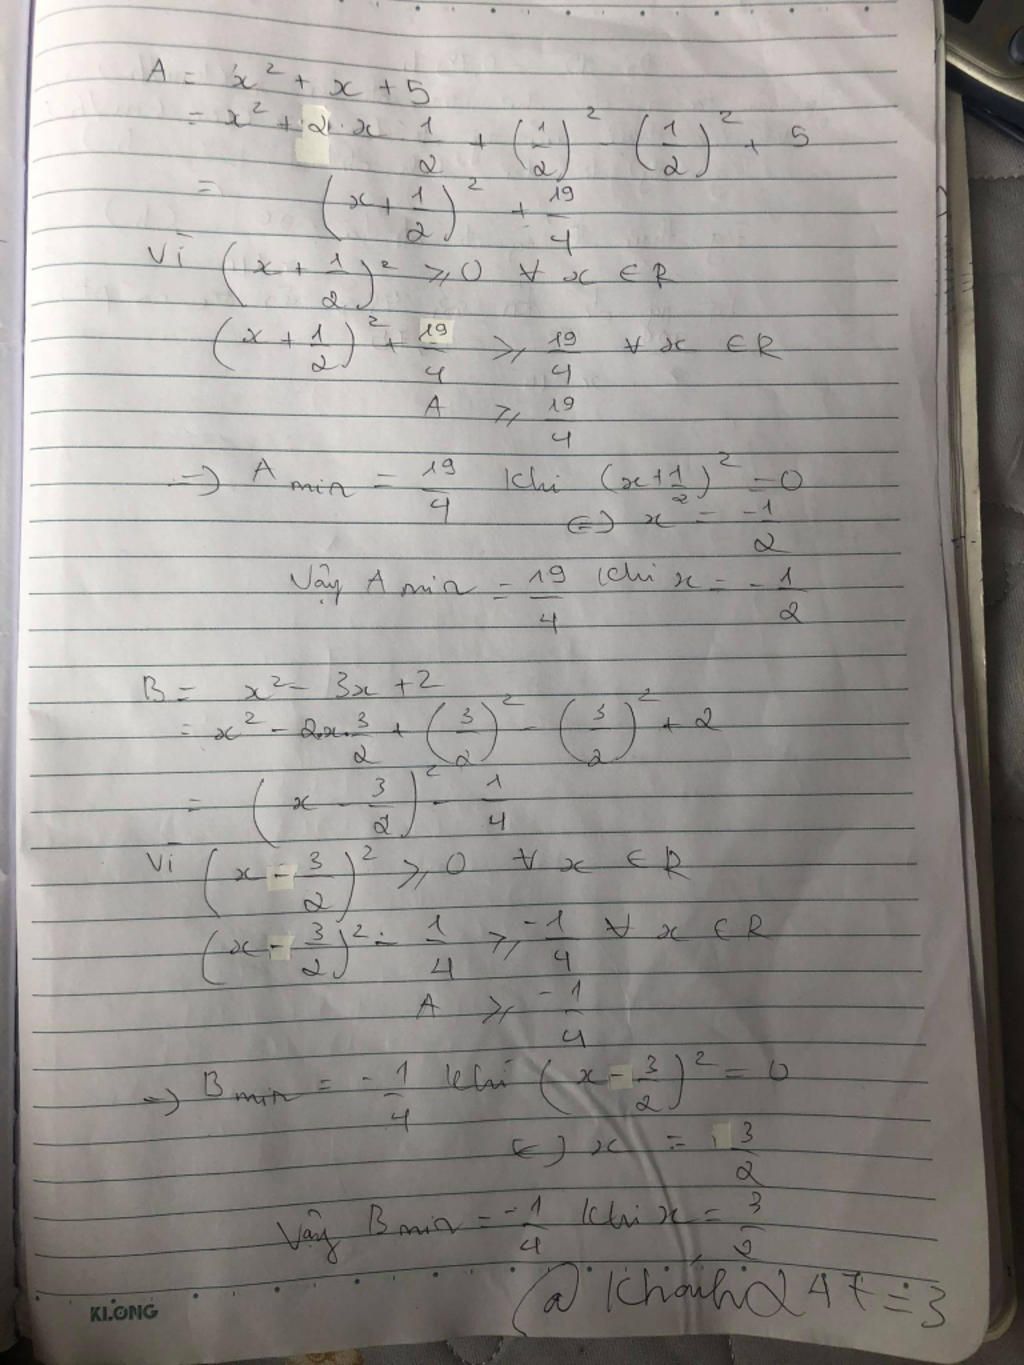 A = x² + x + 5
= x² + 2·x 1/2 + (1/2)² - (1/2)² + 5
= (x + 1/2)² + 19/4
Vì (x + 1/2)² ≥ 0 ∀ x ∈ R
(x + 1/2)² + 19/4 ≥ 19/4 ∀ x ∈ R
A ≥ 19/4
=> A min = 19/4 khi (x + 1/2)² = 0
<=> x² = -1/2
Vậy A min = 19/4 khi x = -1/2
B = x² - 3x + 2
= x² - 2x·3/2 + (3/2)² - (3/2)² + 2
= (x - 3/2)² - 1/4
Vì (x - 3/2)² ≥ 0 ∀ x ∈ R
(x - 3/2)² - 1/4 ≥ -1/4 ∀ x ∈ R
A ≥ -1/4
=> B min = -1/4 khi (x - 3/2)² = 0
<=> x = 3/2
Vậy B min = -1/4 khi x = 3/2
@ Khánh 247 = 3
KLONG